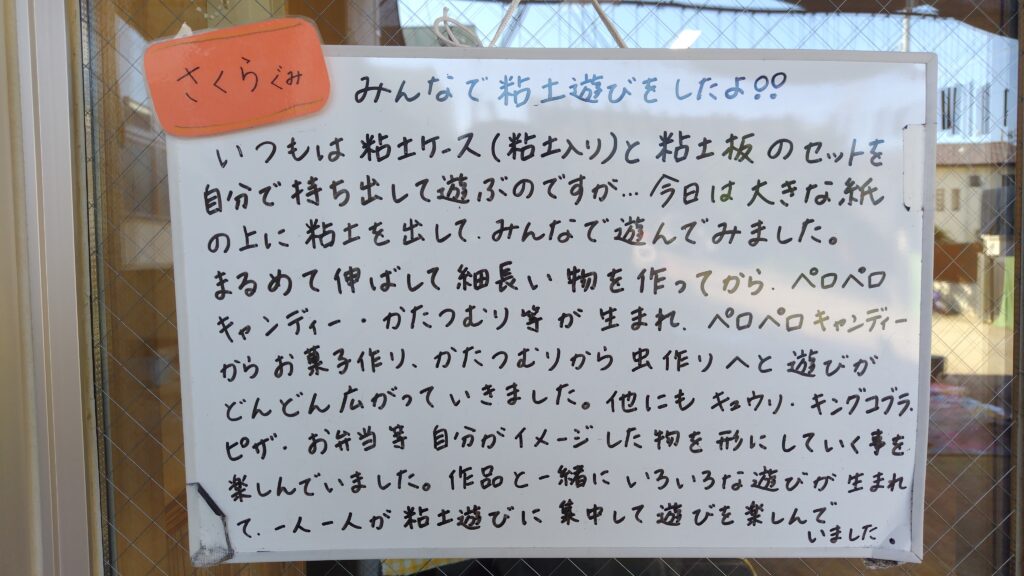 さくらぐみ
みんなで粘土遊びをしたよ!!
いつもは粘土ケース(粘土入り)と粘土板のセットを
自分で持ち出して遊ぶのですが…今日は大きな紙
の上に粘土を出して、みんなで遊んでみました。
まるめて伸ばして細長い物を作ってから、ペロペロ
キャンディー・かたつむり等が生まれ、ペロペロキャンディー
からお菓子作り、かたつむりから虫作りへと遊びが
どんどん広がっていきました。他にもキュウリ・キングコブラ・
ピザ・お弁当等自分がイメージした物を形にしていく事を
楽しんでいました。作品と一緒にいろいろな遊びが生まれ
て、一人一人が粘土遊びに集中して遊びを楽しんで
いました。